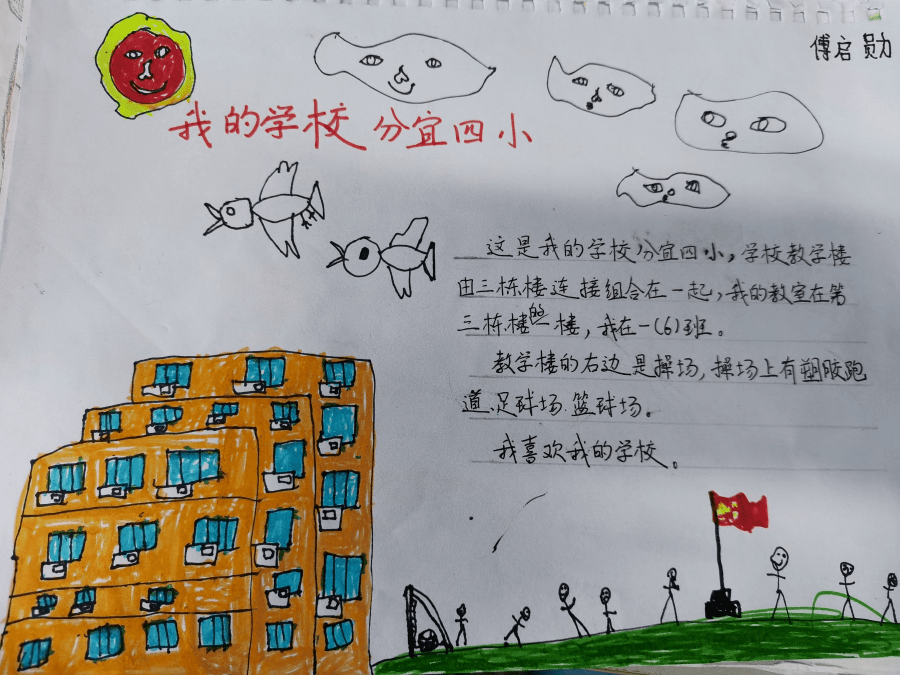 傅启勋
我的学校分宜四小
这是我的学校分宜四小，学校教学楼
由三栋楼连接组合在一起，我的教室在第
三栋楼的一楼，我在一(6)班。
教学楼的右边是操场，操场上有塑胶跑
道、足球场、篮球场。
我喜欢我的学校。